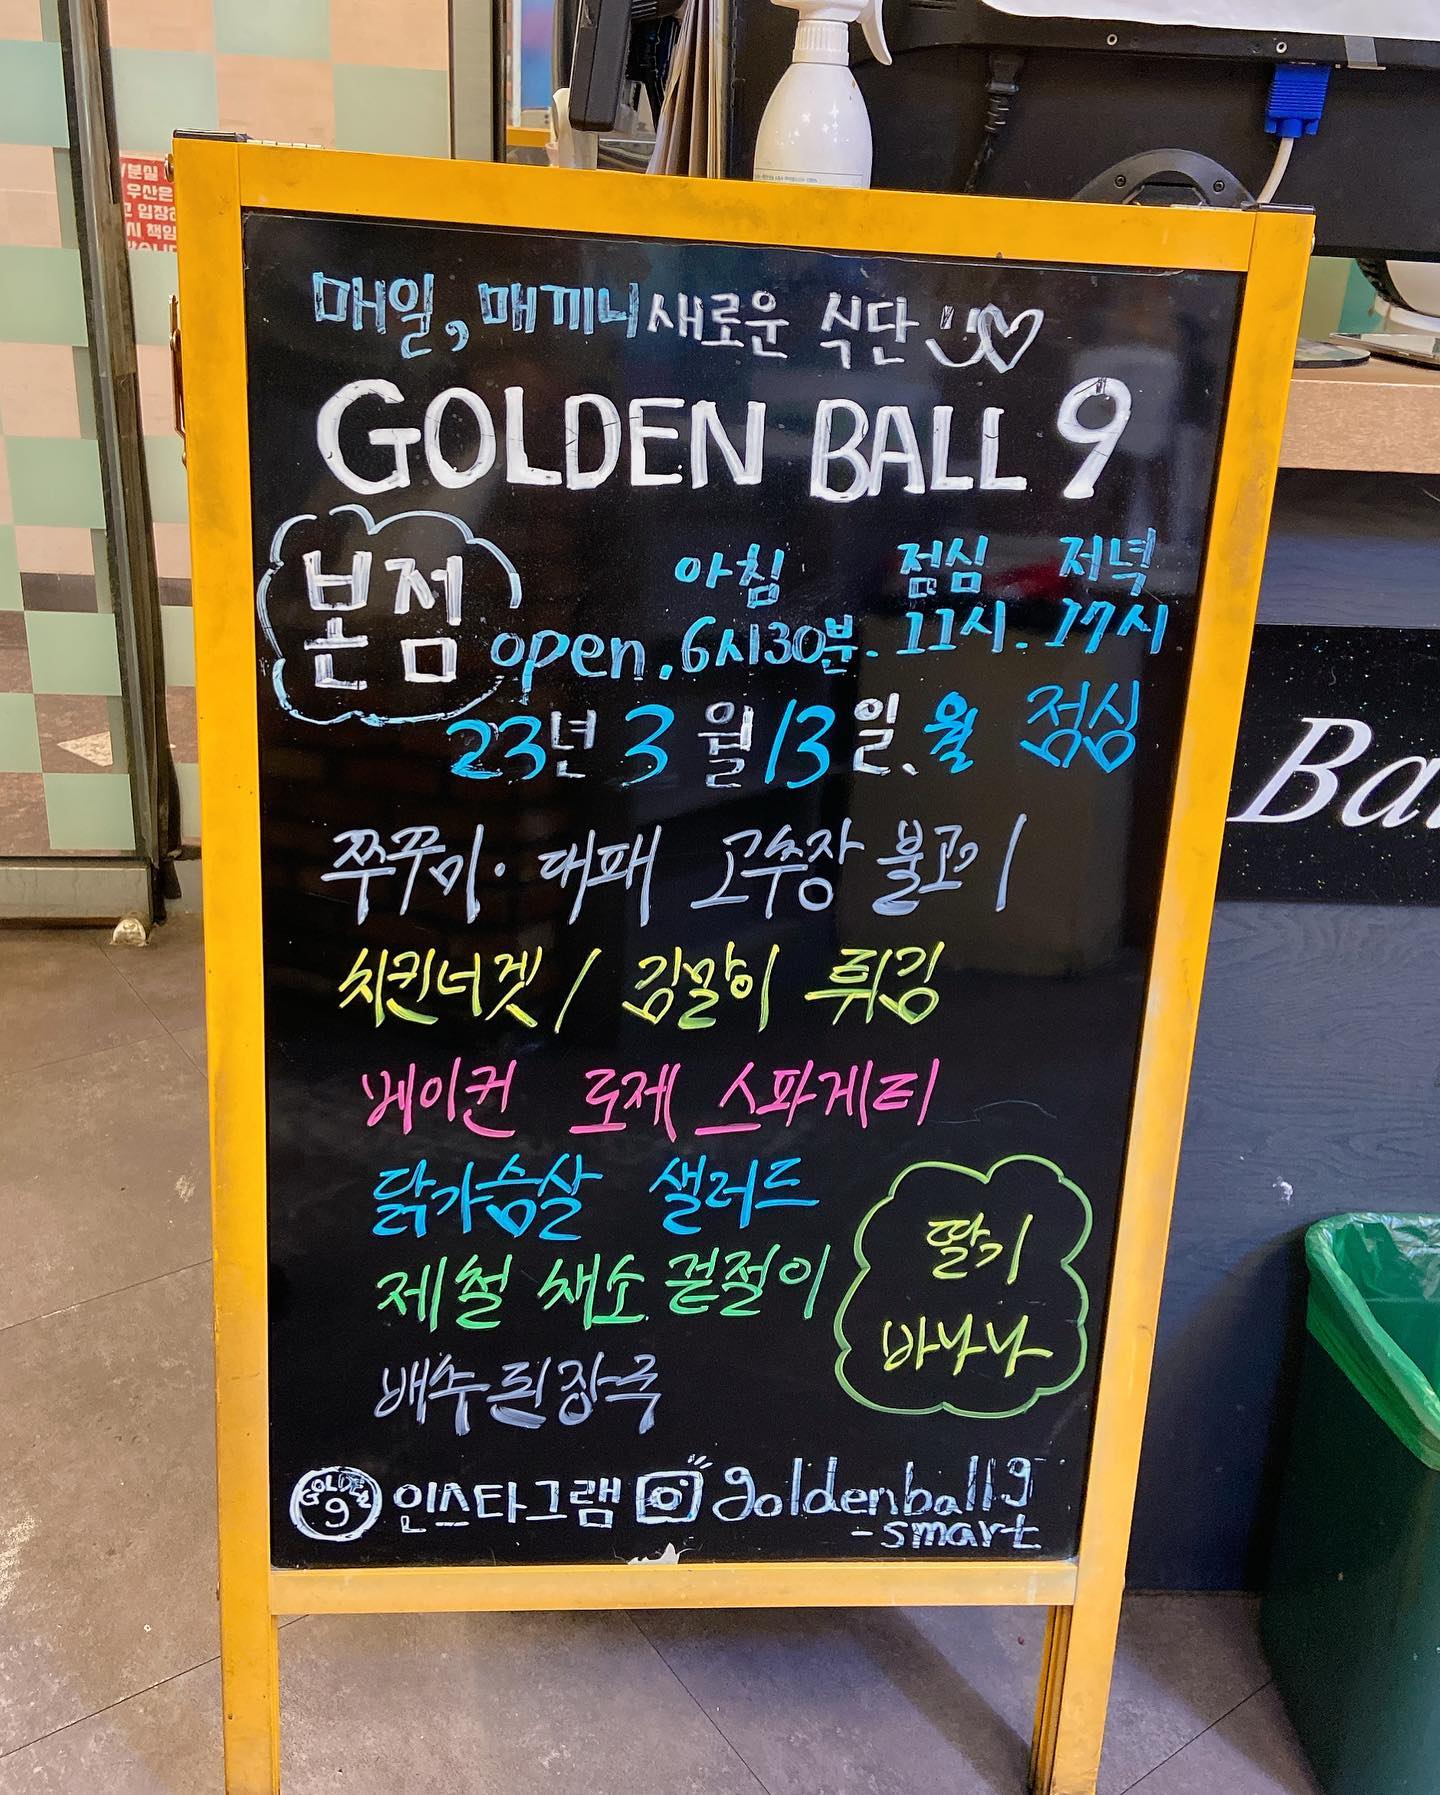 분실
우산은
입장
시 책임
매일, 매끼니 새로운 식단
GOLDEN BALL 9
본점
아침 점심 저녁
open. 6시30분. 11시. 17시
23년 3월 13일. 월 점심
쭈꾸미·대패 고추장 불고기
치킨너겟 / 김말이 튀김
베이컨 로제 스파게티
닭가슴살 샐러드
제철 채소 겉절이
배추된장국
딸기
바나나
GOLDEN 9
인스타그램 goldenball9
-smart
Ba